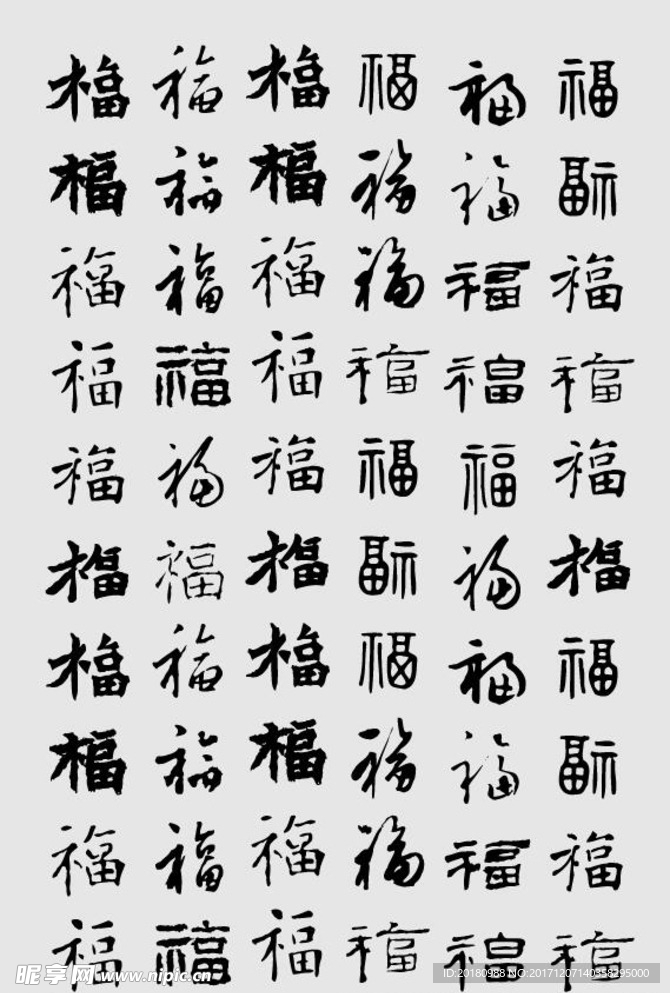 福福福福福福
福福福福福福
福福福福福福
福福福福福福
福福福福福福
福福福福福福
福福福福福福
福福福福福福
福福福福福福
福福福福福福
昵享网 www.nipic.cn
ID:20180988 NO:20171207140358295000